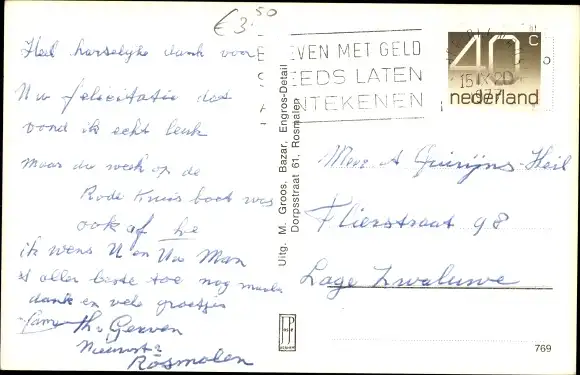 € 3.50
Heel hartelijke dank voor
Uw felicitatie dat
vond ik echt leuk
maar de week op de
Rode Kruis boot was
ook af
ik wens U en Uw Man
't aller beste toe nog
dank en vele groetjes
Th. Gerven
Rosmalen
Uitg. M. Groos, Bazar, Engros-Detail
Dorpsstraat 61, Rosmalen
EVEN MET GELD
EEDS LATEN
NTEKENEN
15
1977
40 c
nederland
Mevr A Quirijns-Heil
Flierstraat 98
Lage Zwaluwe
JP
769